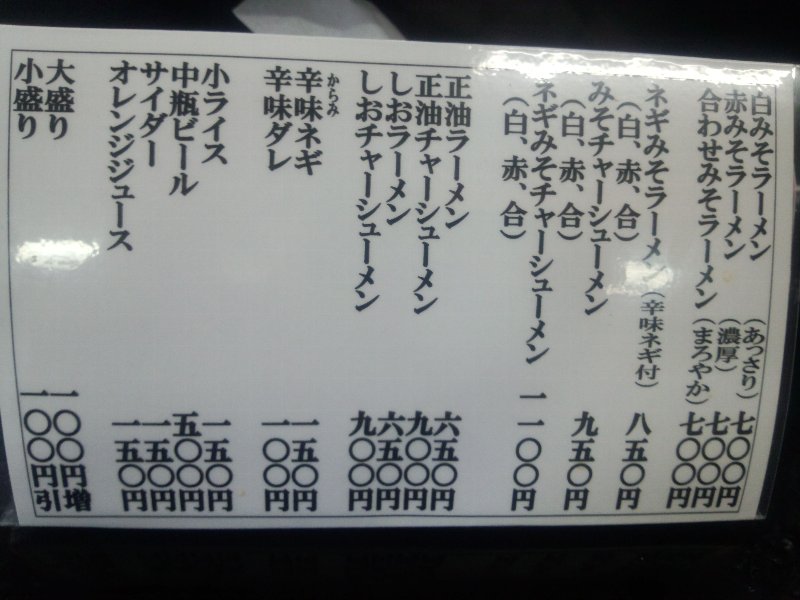 白みそラーメン（あっさり）七〇〇円
赤みそラーメン（濃厚）七〇〇円
合わせみそラーメン（まろやか）七〇〇円
ネギみそラーメン（辛味ネギ付）八五〇円
（白、赤、合）
みそチャーシューメン 九五〇円
（白、赤、合）
ネギみそチャーシューメン 一一〇〇円
（白、赤、合）
正油ラーメン 六五〇円
正油チャーシューメン 九〇〇円
しおラーメン 六五〇円
しおチャーシューメン 九〇〇円
からみ
辛味ネギ 一五〇円
辛味ダレ 一〇〇円
小ライス 一五〇円
中瓶ビール 五〇〇円
サイダー 一五〇円
オレンジジュース 一五〇円
大盛り 一〇〇円増
小盛り 一〇〇円引